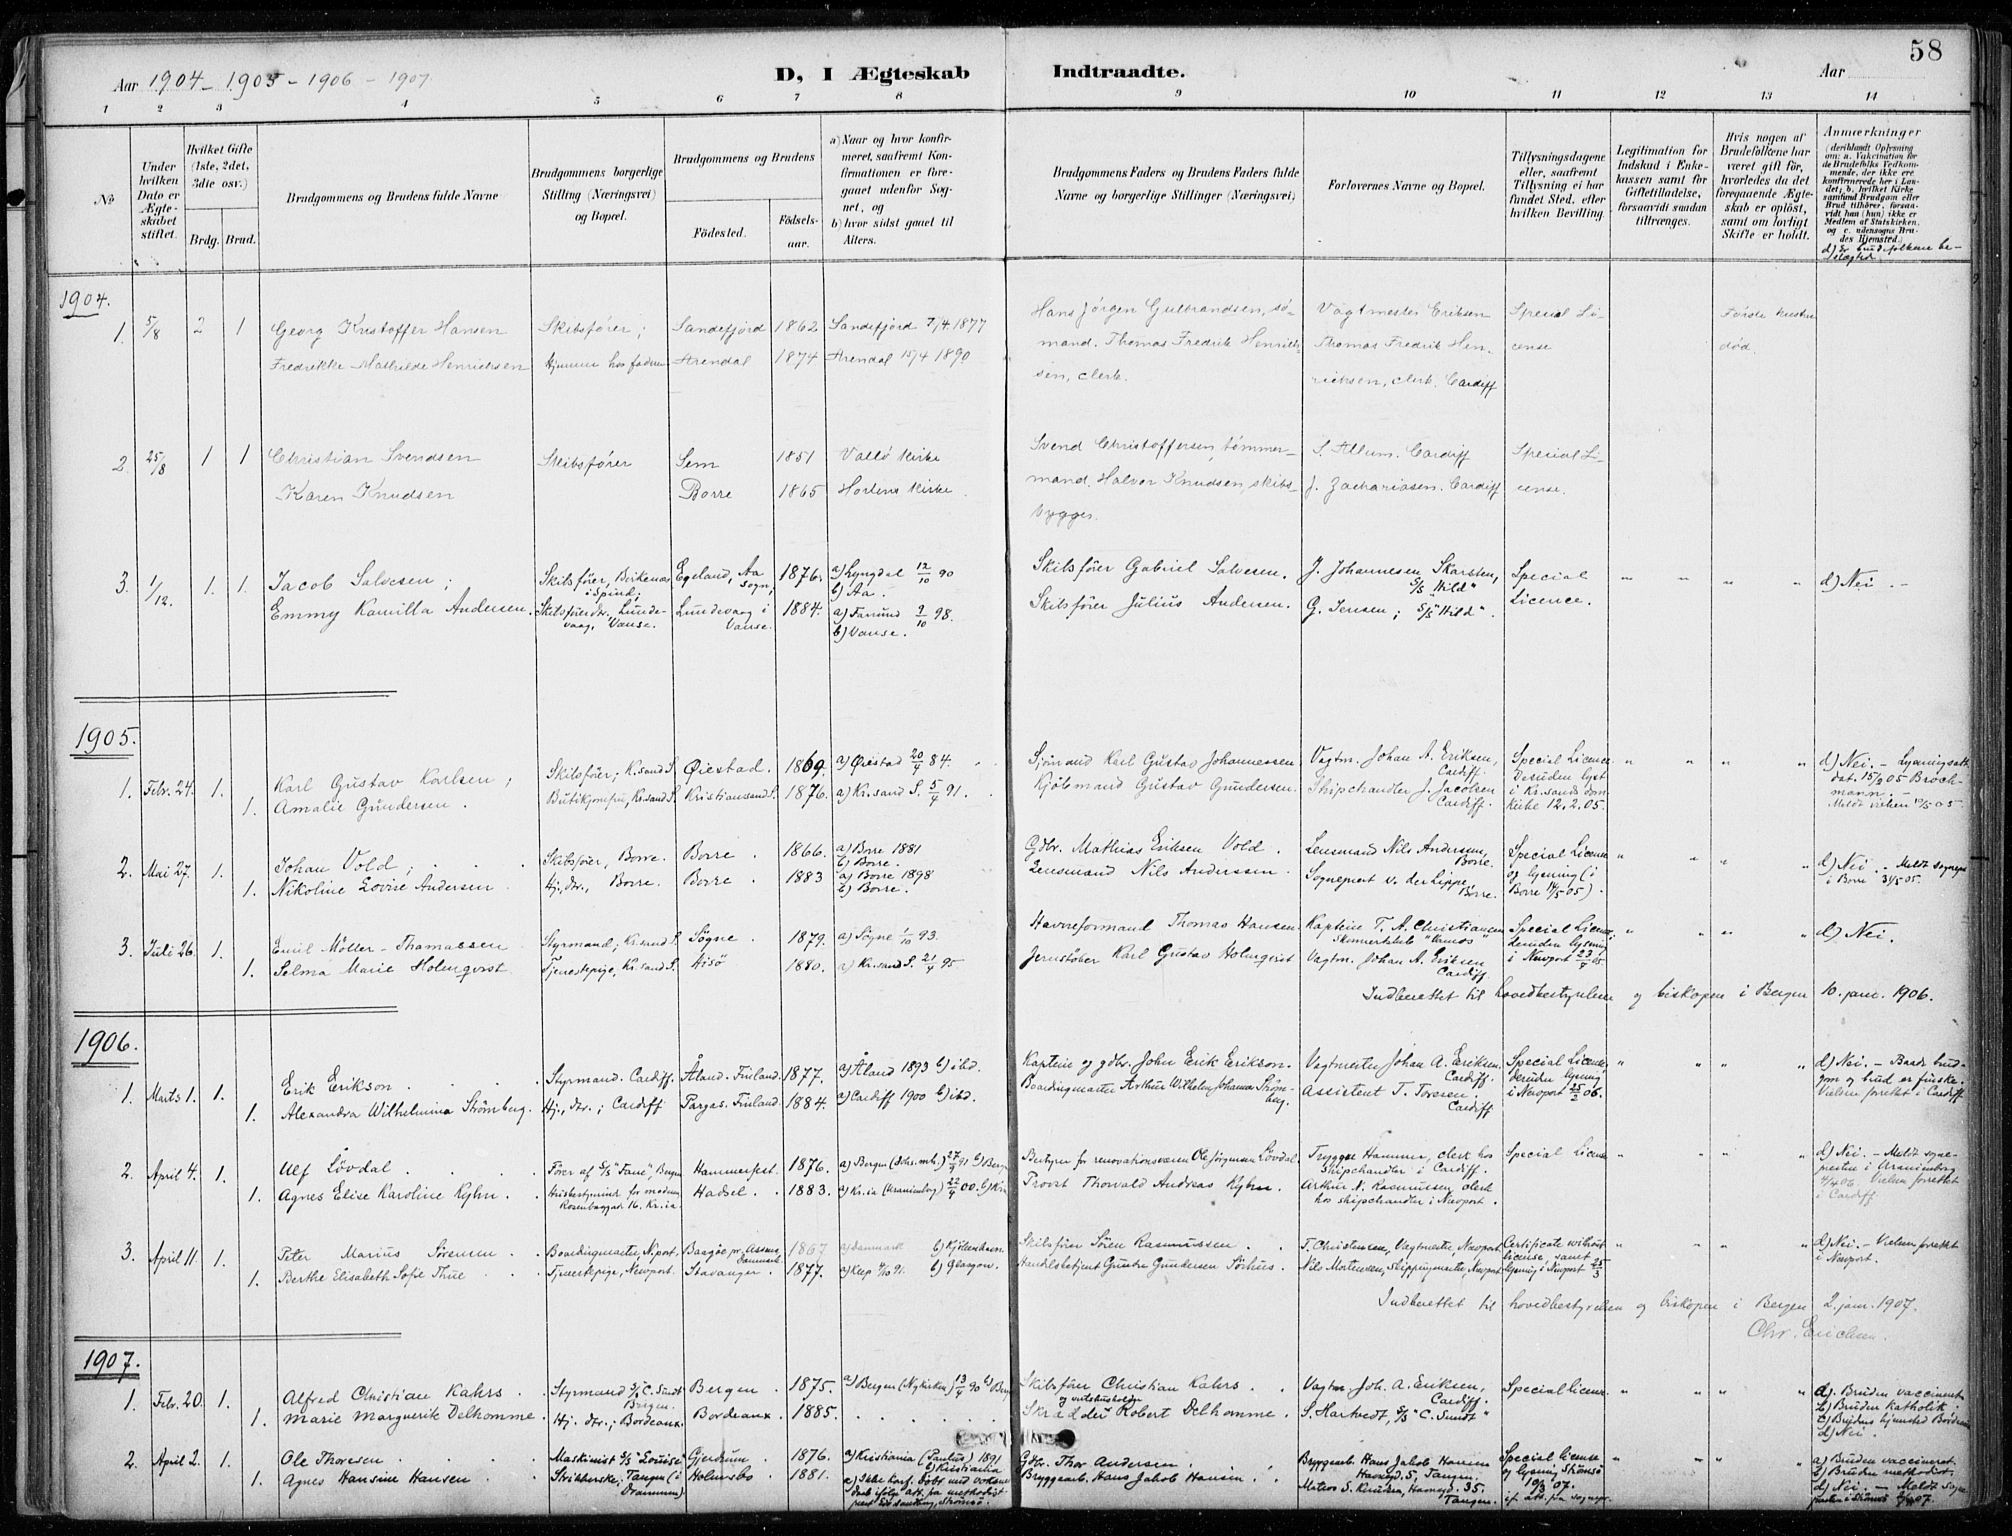 58
Aar 1904 - 1905 - 1906 - 1907
D, I Ægteskab Indtraadte.
Aar
1 2 3 4 5 6 7 8 9 10 11 12 13 14
No
Under hvilken Dato er Ægteskabet stiftet.
Hvilket Gifte (1ste, 2det, 3die osv.)
Brdg. Brud.
Brudgommens og Brudens fulde Navne
Brudgommens borgerlige Stilling (Næringsvei) og Bopæl.
Brudgommens og Brudens
Fødested. Fødselsaar.
a) Naar og hvor konfirmeret, saafremt Konfirmationen er foregaaet udenfor Sognet, og
b) hvor sidst gaaet til Alters.
Brudgommens Faders og Brudens Faders fulde Navne og borgerlige Stillinger (Næringsvei)
Forlovernes Navne og Bopæl.
Tillysningsdagene eller, saafremt Tillysning ei har fundet Sted, efter hvilken Bevilling.
Legitimation for Indskud i Enkekassen samt for Giftetilladelse, forsaavidt saadan tiltrænges.
Hvis nogen af Brudefolkene har været gift før, hvorledes da det foregaaende Ægteskab er opløst, samt om lovligt Skifte er holdt.
Anmærkninger (deriblandt Oplysning om: a. Vakcination for de Brudefolks Vedkommende, der ikke ere konfirmerede her i Landet; b. hvilket Kirkesamfund Brudgom eller Brud tilhører, forsaavidt han (hun) ikke er Medlem af Statskirken, og c. udensogns Brudes Hjemsted.)
d) Er brudefolkene beslægtede
1904.
1. 5/8 2 1 Georg Kristoffer Hansen Skibsfører; Sandefjord 1862 Sandefjord 7/4 1877
Fredrikke Mathilde Henriksen Hjemme hos faderen Arendal 1874 Arendal 15/4 1890
Hans Jörgen Gulbrandsen, sö-
mand. Thomas Fredrik Henrik-
sen, clerk.
Vagtmester Eriksen
Thomas Fredrik Hen-
riksen, clerk. Cardiff
Special Li-
cense
Første hustru
død.
2. 25/8 1 1 Christian Svendsen Skibsfører Sem 1851 Vallö Kirke
Karen Knudsen Borre 1865 Hortens Kirke
Svend Christoffersen, tømmer-
mand. Halvor Knudsen, skibs-
bygger.
S. Allum. Cardiff
J. Zachariasen. Cardiff
Special Li-
cense.
3. 1/12. 1. 1. Jacob Salvesen; Skibsfører, Birkenes i Spind; Egeland, Aa sogn, 1876. a) Lyngdal 12/10 90 b) Aa.
Emmy Kamilla Andersen. Skibsførerdtr. Lundevaag, Vanse. Lundevaag i Vanse. 1884. a) Farsund 9/10 98. b) Vanse.
Skibsfører Gabriel Salvesen.
Skibsfører Julius Andersen.
J. Johannesen Skarsten, S/S "Hild"
G. Jensen; S/S "Hild".
Special
Licence.
" " " " d) Nei. -
1905.
1. Febr. 24. 1. Karl Gustav Karlsen; Skibsfører; Kr.sand S. Øiestad. 1869. a) Øiestad 20/4 84.
1. Amalie Gundersen. Butikjomfru, Kr.sand S. Kristiansand S. 1876. a) Kr.sand S. 5/4 91.
Sjömand Karl Gustav Johannessen
Kjöbmand Gustav Gundersen.
Vagtm. Johan A. Eriksen, Cardiff.
Shipchandler J. Jacobsen Cardiff.
Special Licence
Desuden lyst
i Kr.sands dom
kirke 12.2.05.
d) Nei. - Lysningsatt.
dat. 15/2 05 Broch-
mann. -
Meldt vielsen 10/5 05.
2. Mai 27. 1. Johan Vold; Skibsfører, Borre. Borre. 1866. a) Borre 1881 b) Borre.
1. Nikoline Lovise Andersen Hj. dtr., Borre. Borre. 1883 a) Borre 1898 b) Borre.
Gdbr. Mathias Eriksen Vold.
Lensmand Nils Anderssen.
Lensmand Nils Andersen, Borre.
Sogneprest v. der Lippe, Borre.
Special Licence
og lysning (i
Borre 14/5 05).
d) Nei. - Meldt sognepr.
i Borre 31/5 05.
3. Juli 26. 1. Emil Möller-Thomassen Styrmand, Kr.sand S. Søgne. 1879. a) Søgne 1/10 93.
1. Selma Marie Holmqvist. Tjenestepige, Kr.sand S. Hisö 1880. a) Kr.sand S. 21/4 95
Havneformand Thomas Hansen
Jernstøber Karl Gustav Holmqvist
Kaptein T. A. Christiansen
Vagtm. Johan A. Eriksen Cardiff.
Special Licence
desuden lysning
i Newport 23/7 05
d) Nei.
Indberettet til hovedbestyrelsen og biskopen i Bergen 10. jan. 1906.
1906.
1. Marts 1. 1. Erik Erikson. Styrmand. Cardiff. Åland. Finland. 1877. a) Åland 1893 b) ibd.
1. Alexandra Wilhelmina Strömberg. Hj. dtr.; Cardiff Pargas. Finland. 1884. a) Cardiff 1900 b) ibd.
Kaptein og gdbr. John Erik Erikson.
Boardingmaster Arthur Wilhelm Johannes Ström-
berg.
Vagtmester Johan A. Eriksen, Cardiff.
Assistent T. Toresen. Cardiff
Special Licence
desuden lysning
i Newport 25/2 06.
d) Nei. - Baade brud-
gom og brud er finske.
Vielsen forrettet i Cardiff.
2. April 4. 1. Ulf Lövdal. Fører af S/S "Fane", Bergen Hammerfest. 1876. a) Bergen (Johs. mh.) 27/9 91 b) Bergen
1. Agnes Elise Karoline Kyhn. Husbestyrerinde for moderen, Rosenborggade 16. Kr.ia Hadsel. 1883. a) Kr.ia (Uranienborg) 22/4 00. b) Kr.ia
Bestyrer for renovationsvæsen Ole Jörgensen Lövdal.
Provst Thorvald Andreas Kyhn.
Trygve Hammer, clerk hos
shipchandler i Cardiff.
Arthur N. Rasmussen, clerk
hos shipchandler i Newport.
Special License
d) Nei. - Meldt sogne-
presten i Uranienborg
4/4 06. Vielsen forrettet
i Cardiff
3. April 11. 1. Peter Marius Sörensen. Boardingmaster, N.port. Baagöe pr. Assens Danmark 1867 a) Danmark b) Kjöbenhavn.
1. Berthe Elisabeth Sofie Thue. Tjenestepige, Newport. Stavanger. 1877. b) Glasgow.
Skibsfører Sören Rasmussen.
Handelsbetjent Gunder Gundersen Sörhus.
T. Christensen, Vagtmester, Newport
Nils Mortensen, Shippingmaster, Newport
Certificate without
license samt
lysning i Newport 25/3
d) Nei. - Vielsen forrettet
i Newport.
Indberettet til hovedbestyrelsen og biskopen i Bergen 2. jan. 1907.
Chr. Erichsen.
1907.
1. Febr. 20. 1. Alfred Christian Kahrs. Styrmand S/S "C. Sundt" Bergen. Bergen. 1875. a) Bergen (Nykirken) 13/4 90 b) Bergen
1. Marie Marguerite Delhomme. Hj. dtr.; Bordeaux. Bordeaux. 1885.
Skibsfører Christian Kahrs.
Skrædder og vertshusholder Robert Delhomme.
Vagtm. Joh. A. Eriksen, Cardiff.
S. Hartvedt, S/S "C. Sundt"
Special license.
a) Bruden vaccineret.
b) Bruden katholik.
c) Brudens hjemsted Bordeaux
d) Nei.
2. April 2. 1. Ole Thoresen. Maskinist S/S "Louise" Gjerdrum 1876. a) Kristiania (Paulus) 1891 b) Kristiania
1. Agnes Hansine Hansen. Strikkerske, Tangen (i Drammen) Holmsbo 1881. a) Ikke konf. Døbt med voksen-
daab ifølge att. fra methodist
Gdbr. Thor Andersen.
Bryggearb. Hans Jakob Hansen.
Bryggearb. Hans Jakob Hansen
Havnegd. 5, Tangen.
Mateus S. Knudsen, Havnegd. 35. Tangen.
Special license
og lysning Strömsö
19/3 07.
if. att. fra sognepr.
a) Bruden vaccineret.
b) Bruden methodist.
d) Nei. - Meldt sogne-
presten i Strömsö 4/4 07.